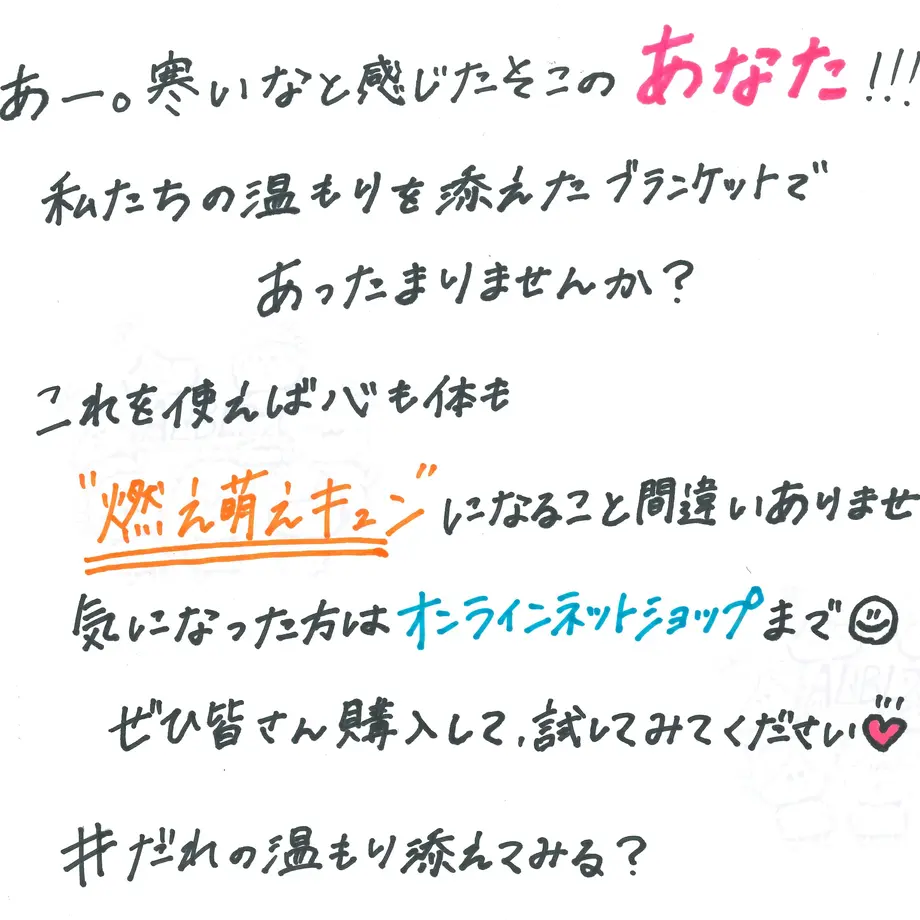 あー。寒いなと感じたそこのあなた!!!
私たちの温もりを添えたブランケットで
あったまりませんか?
これを使えば心も体も
"燃え萌えキュン"になること間違いありませ
気になった方はオンラインネットショップまで
ぜひ皆さん購入して、試してみてください
#だれの温もり添えてみる?